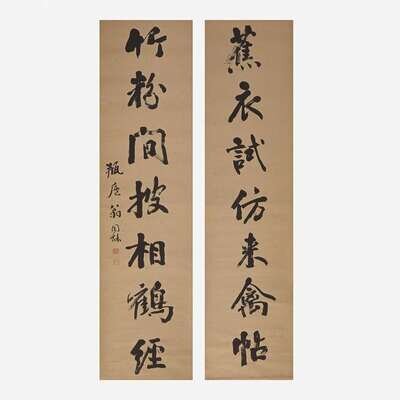 蕉衣試仿来禽帖
竹粉閒披相鶴經
瓶廬翁同龢